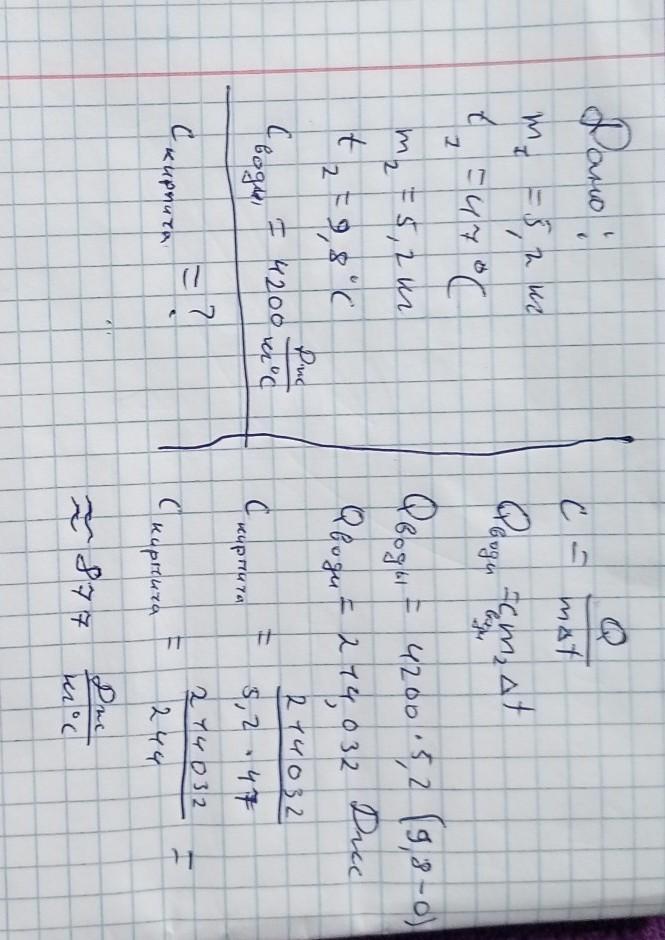 Дано:
m₁ = 5,2 кг
t₁ = 47°C
m₂ = 5,2 кг
t₂ = 9,8°C
C воды = 4200 Дж/кг°C
C кирпича = ?
C = Q/mΔt
Q воды = C воды m₂ Δt
Q воды = 4200 · 5,2 (9,8 - 0)
Q воды = 214,032 Дж
C кирпича = 214032/5,2 · 47
C кирпича = 214032/244 =
≈ 877 Дж/кг°C